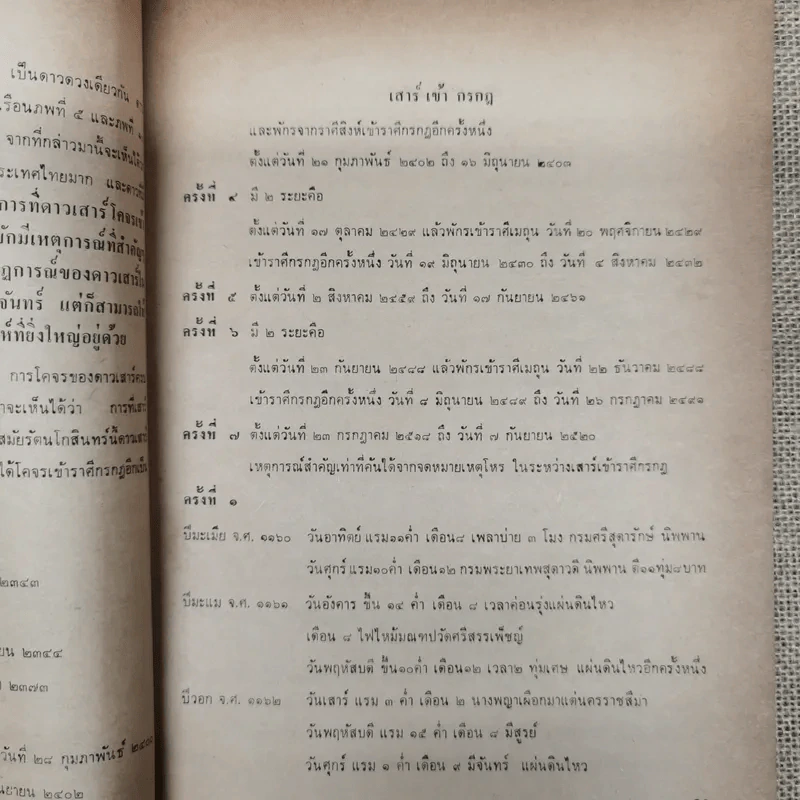 เป็นดาวดวงเดียวกัน
เรือนภพที่ ๕ และภพที่
จากที่กล่าวมานี้จะเห็นได้
ประเทศไทยมาก และดาว
การที่ดาวเสาร์โคจรเข้า
มักมีเหตุการณ์ที่สำคัญ
ฏการณ์ของดาวเสาร์ใน
จันทร์ แต่ก็สามารถใช้
ห์ที่ยิ่งใหญ่อยู่ด้วย
การโคจรของดาวเสาร์
าจะเห็นได้ว่า การที่เสาร์
สมัยรัตนโกสินทร์นี้ดาวเสาร์
ได้โคจรเข้าราศีกรกฏอีก
๒๓๔๓
ยน ๒๓๔๔
๒๓๗๓
วันที่ ๒๘ กุมภาพันธ์ ๒๔๐๑
นยายน ๒๔๐๒
เสาร์ เข้า กรกฎ
และพักรจากราศีสิงห์เข้าราศีกรกฏอีกครั้งหนึ่ง
ตั้งแต่วันที่ ๒๑ กุมภาพันธ์ ๒๔๐๒ ถึง ๑๖ มิถุนายน ๒๔๐๓
ครั้งที่ ๔ มี ๒ ระยะคือ
ตั้งแต่วันที่ ๑๗ ตุลาคม ๒๔๒๙ แล้วพักรเข้าราศีเมถุน วันที่ ๒๐ พฤศจิกายน ๒๔๒๙
เข้าราศีกรกฏอีกครั้งหนึ่ง วันที่ ๑๙ มิถุนายน ๒๔๓๐ ถึง วันที่ ๔ สิงหาคม ๒๔๓๒
ครั้งที่ ๕ ตั้งแต่วันที่ ๒ สิงหาคม ๒๔๕๙ ถึง วันที่ ๑๗ กันยายน ๒๔๖๑
ครั้งที่ ๖ มี ๒ ระยะคือ
ตั้งแต่วันที่ ๒๓ กันยายน ๒๔๘๘ แล้วพักรเข้าราศีเมถุน วันที่ ๒๒ ธันวาคม ๒๔๘๘
เข้าราศีกรกฏอีกครั้งหนึ่ง วันที่ ๘ มิถุนายน ๒๔๘๙ ถึง วันที่ ๒๖ กรกฎาคม ๒๔๙๑
ครั้งที่ ๗ ตั้งแต่วันที่ ๒๓ กรกฎาคม ๒๕๑๘ ถึง วันที่ ๗ กันยายน ๒๕๒๐
เหตุการณ์สำคัญเท่าที่ค้นได้จากจดหมายเหตุโหร ในระหว่างเสาร์เข้าราศีกรกฏ
ครั้งที่ ๑
ปีมะเมีย จ.ศ. ๑๑๖๐ วันอาทิตย์ แรม๑๑ค่ำ เดือน๘ เพลาบ่าย ๓ โมง กรมศรีสุดารักษ์ นิพพาน
วันศุกร์ แรม๑๐ค่ำ เดือน๑๒ กรมพระยาเทพสุดาวดี นิพพาน ตี๑๑ทุ่ม๘บาท
ปีมะแม จ.ศ. ๑๑๖๑ วันอังคาร ขึ้น ๑๔ ค่ำ เดือน ๘ เวลาค่อนรุ่งแผ่นดินไหว
เดือน ๘ ไฟไหม้มณฑปวัดศรีสรรเพ็ชญ์
วันพฤหัสบดี ขึ้น๑๐ค่ำ เดือน๑๒ เวลา๒ ทุ่มเศษ แผ่นดินไหวอีกครั้งหนึ่ง
ปีวอก จ.ศ. ๑๑๖๒ วันเสาร์ แรม ๓ ค่ำ เดือน ๒ นางพญาเผือกมาแต่นครราชสีมา
วันพฤหัสบดี แรม ๑๕ ค่ำ เดือน ๘ มีสูรย์
วันศุกร์ แรม ๑ ค่ำ เดือน ๙ มีจันทร์ แผ่นดินไหว